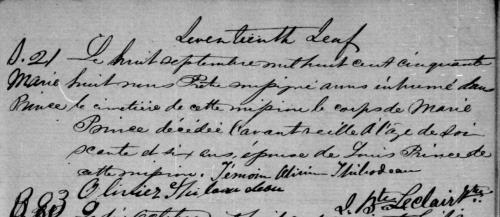 Seventeenth Leaf
S. 21 Le huit septembre mil huit cent cinquante
Marie huit nous Prêtre soussigné avons inhumé dans
Prince le cimetière de cette mission le corps de Marie
Prince décédée l'avant veille à l'age de soi
xcante et six ans, épouse de Louis Prince de
cette mission. Témoin Olivier Thibodeau
Olivier Thibaudeau
J. Bte Leclair Ptre
B 83